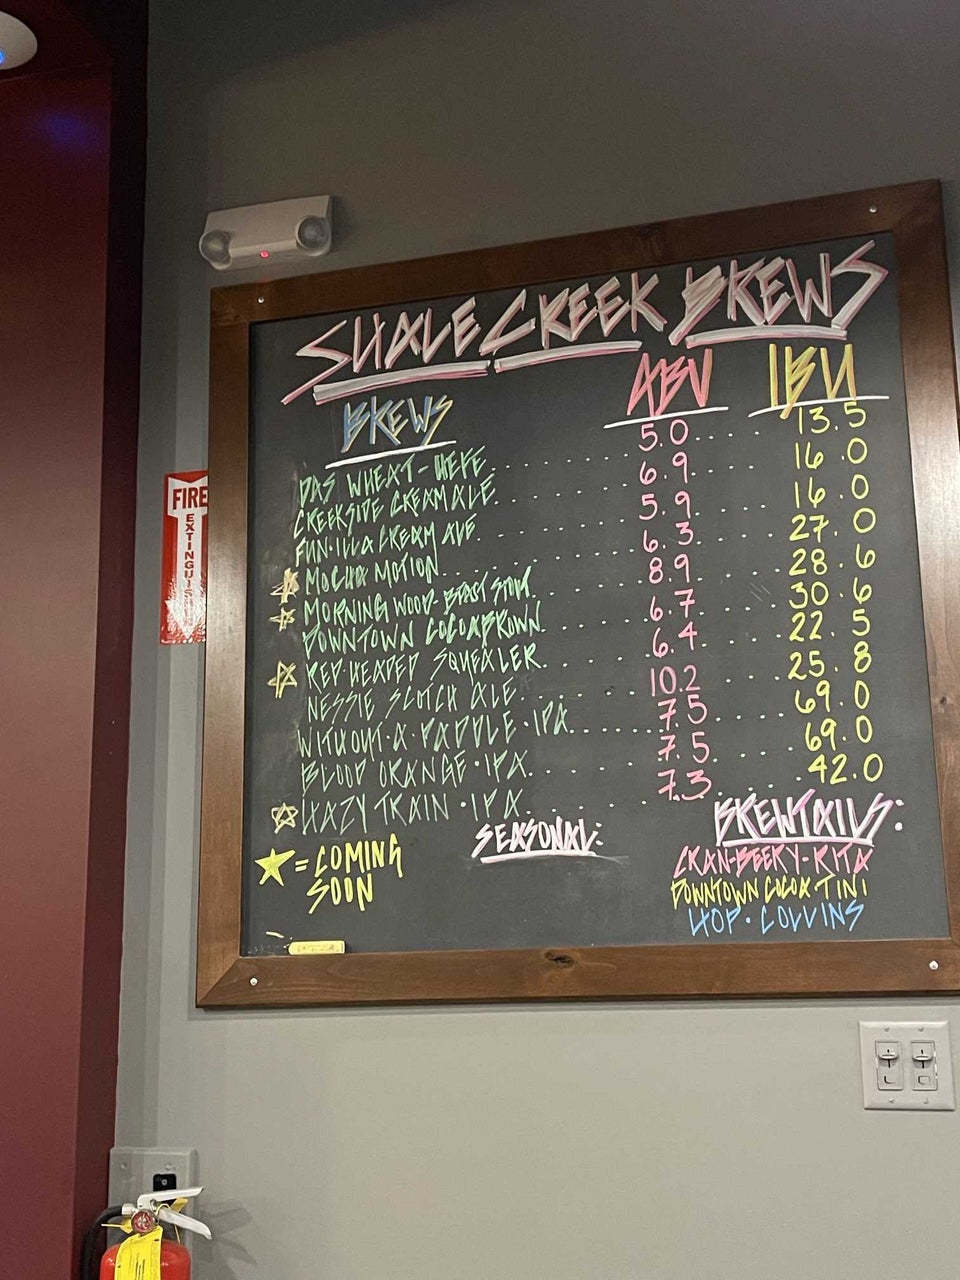 SHALE CREEK BREWS
BREWS ABV IBU
DAS WHEAT-HEFE 5.0 13.5
CREEKSIDE CREAM ALE 6.9 16.0
FUN·ILLA CREAM ALE 5.9 16.0
MOCHA MOTION 6.3 27.0
MORNING WOOD BEAST STOUT 8.9 28.6
DOWNTOWN COCOA BROWN 6.7 30.6
RED HEADED SQUEALER 6.4 22.5
NESSIE SCOTCH ALE 10.2 25.8
WITHOUT·A·PADDLE·IPA 7.5 69.0
BLOOD ORANGE·IPA 7.5 69.0
HAZY TRAIN·IPA 7.3 42.0
= COMING SOON
SEASONAL:
BREWTAILS:
CRAN-BEERY-RITA
DOWNTOWN COCOA TINI
HOP·COLLINS
FIRE
EXTINGUISHER